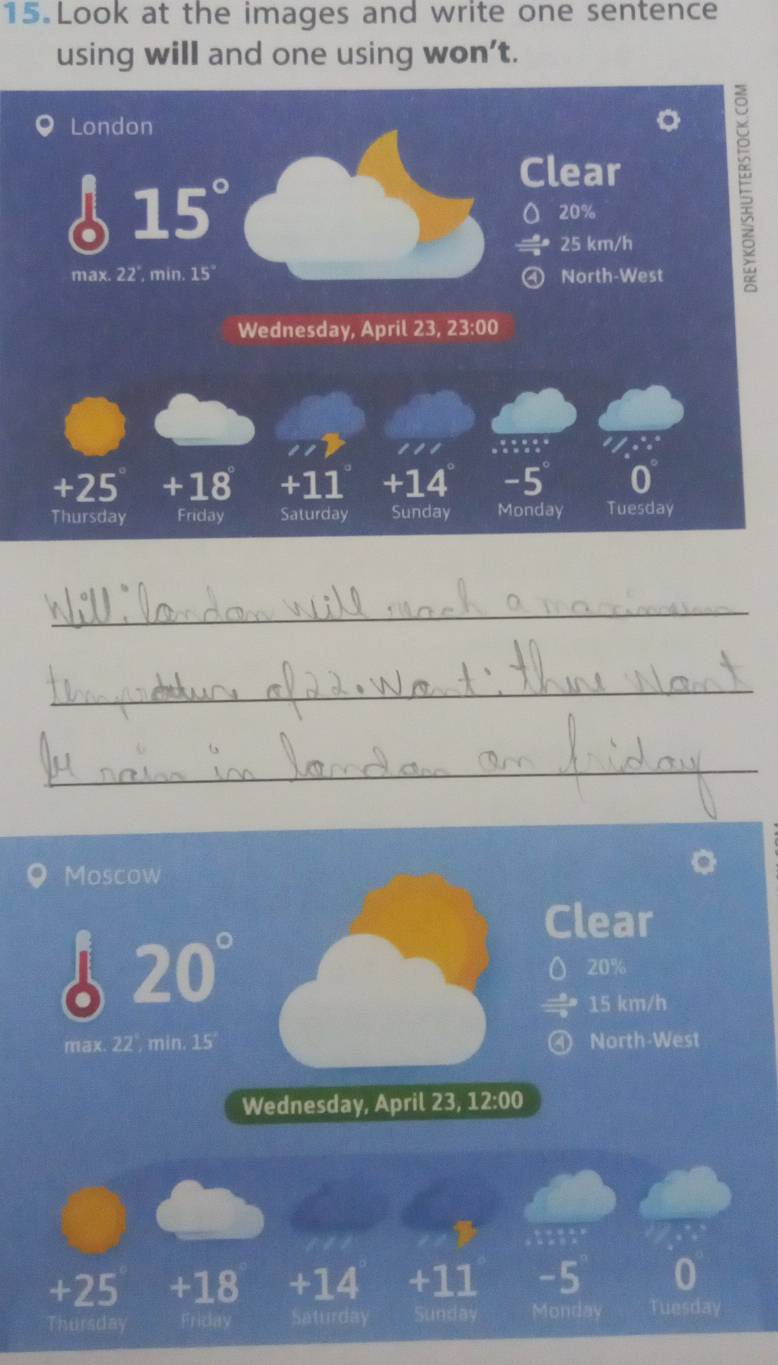 15. Look at the images and write one sentence
using will and one using won't.
London
15°
max. 22°, min. 15°
Clear
20%
25 km/h
North-West
Wednesday, April 23, 23:00
+25° +18° +11° +14° -5° 0°
Thursday Friday Saturday Sunday Monday Tuesday
DREYKON/SHUTTERSTOCK.COM
Will: london will reach a maximum
temperature of 22. Wont: there Wont
be rain in london on friday
Moscow
20°
max. 22°, min. 15°
Clear
20%
15 km/h
North-West
Wednesday, April 23, 12:00
+25° +18° +14° +11° -5° 0°
Thursday Friday Saturday Sunday Monday Tuesday